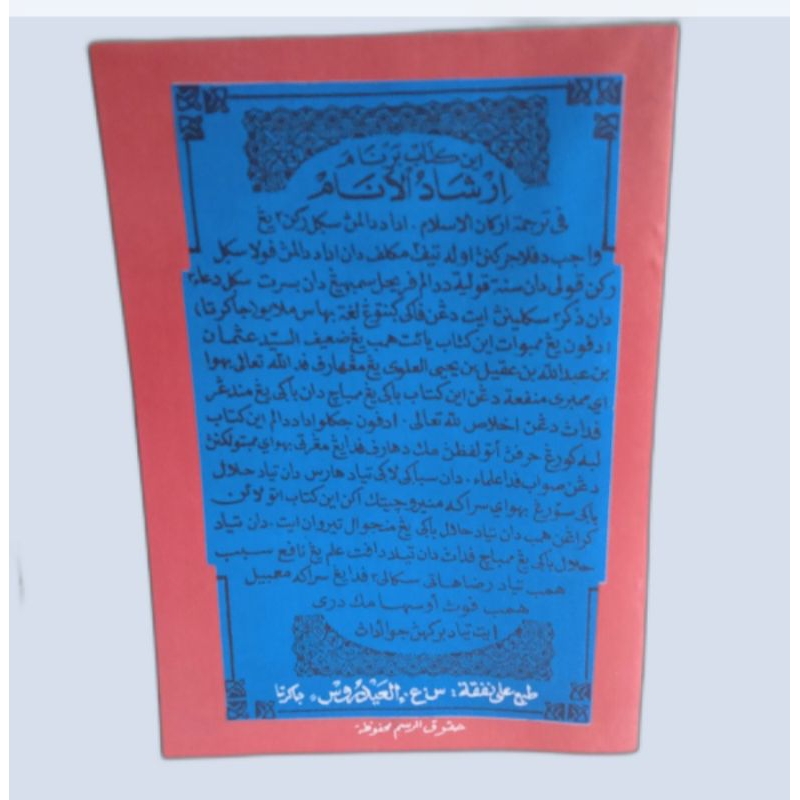 اين كتاب برنام
إرشاد الأنام
في ترجمة اركان الاسلام . اداددالمن سكل ركن٢ يغ
واجب دفلاجركنن اوله تيف٢ مكلف دان اداددالمن فولا سكل
ركن قولي دان سنة قولية ددالم فريجل سمبهيغ دان بسرت سكل دعاء٢
دان ذكر٢ سكلينن ايت دغن فاكي كنتوغ لغة بهاس ملايو (جاكرتا)
ادفون يغ ممبوات اين كتاب يائت همب يغ ضعيف السيد عثمان
بن عبدالله بن عقيل بن يحيى العلوي يغ مغهارف فد الله تعالى بهوا
اي ممبري منفعة دغن اين كتاب باكي يغ ممباچ دان باكي يغ مندغر
فداث دغن اخلاص لله تعالى . ادفون جكلو اداددالم اين كتاب
لبه كورغ حرفن اتو لفظن مك دهارف فدايغ مغرتي بهواي ممبتولكن
دغن صواب فدا علماء . دان سباكي لاكي تياد هارس دان تياد حلال
باكي سؤرغ بهواي سراكه منيروچيتك اكن اين كتاب اتو لائن
كراغن همب دان تياد حلال باكي يغ منجوال تيروان ايت . دان تياد
حلال باكي يغ ممباچ فداث دان تياد دافت علم يغ نافع سبب
همب تياد رضا هاتي سكالي٢ فدايغ سراكه معمبيل
همب فوث اوسها مك دري
ايت تياد بركهن جوالداث
طبع على نفقة : س . ع . العيدروس ، جاكرتا
حقوق الرسم محفوظة